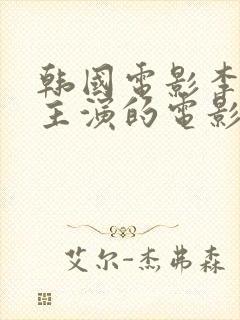 韩国电影李
主演的电影
艾尔-杰弗森